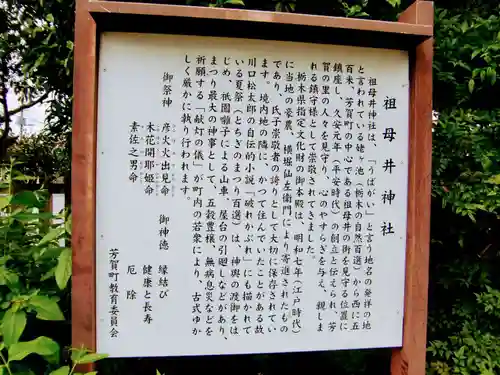 祖母井神社
祖母井神社は、「うばがい」と言う地名の発祥の地
と言われている姥ヶ池(栃木の自然百選)から西に五
百米、芳賀町の中心である祖母井の街を見守る位置に
鎮座し、久安元年(平安時代)の創立と伝えられ、芳
賀の里の人々を見守り、心のやすらぎを与え、親しま
れる鎮守様として崇敬されてきました。
栃木県指定文化財の御本殿は、明和七年(江戸時代)
に当地の豪農、横堀仙左衛門により寄進されたもの
であり、氏子崇敬者の誇りとして大切に保存されてい
ます。境内地の隣に、かつて住んでいたことがある故
川口松太郎の自伝的小説「破れかぶれ」にも描かれて
いる夏祭(とちぎのまつり百選)は、神輿の渡御をは
じめ、祇園囃子による山車、屋台の引廻しなどがあり、
まつり最大の神事として、五穀豊穣、無病息災などを
祈願する「献灯の儀」が町内の若衆により、古式ゆか
しく厳かに執り行われます。
御祭神 彦火火出見命
木花開耶姫命
素佐之男命
御神徳 縁結び
健康と長寿
厄除
芳賀町教育委員会